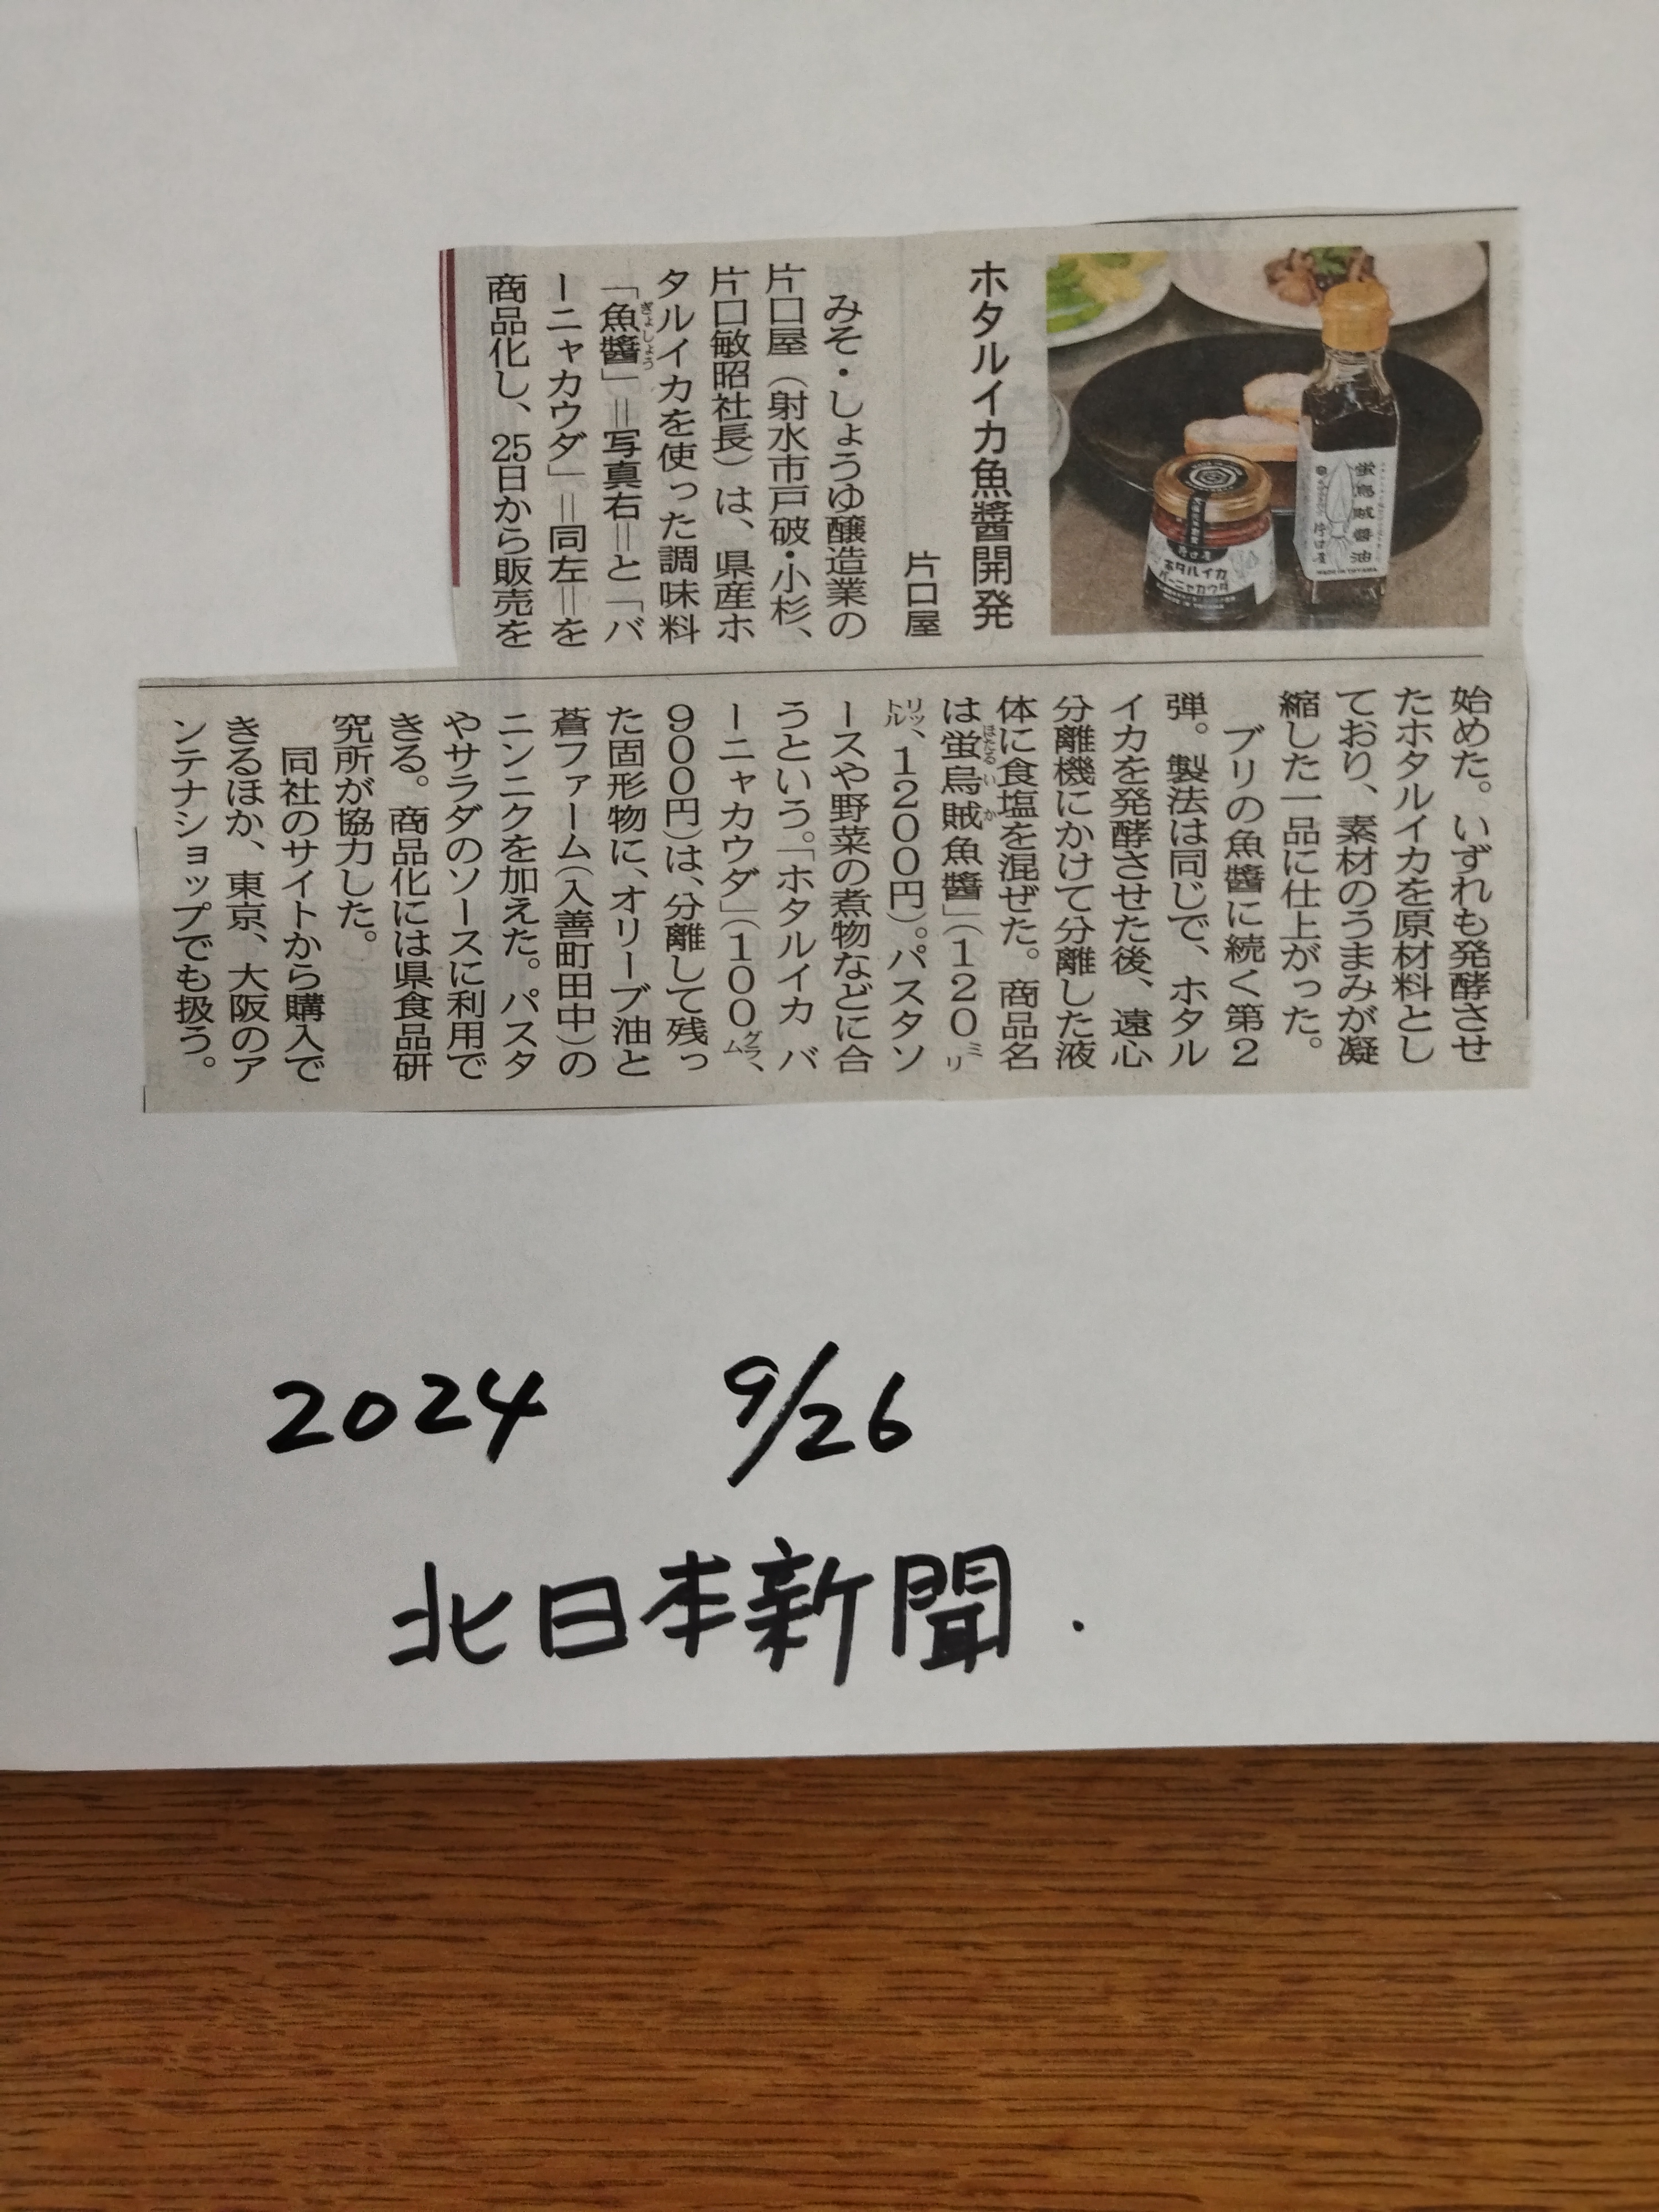 ホタルイカ魚醬開発
片口屋
みそ・しょうゆ醸造業の
片口屋（射水市戸破・小杉、
片口敏昭社長）は、県産ホ
タルイカを使った調味料
「魚醬」＝写真右＝と「バ
ぎょしょう
ーニャカウダ」＝同左＝を
商品化し、25日から販売を
始めた。いずれも発酵させ
たホタルイカを原材料とし
ており、素材のうまみが凝
縮した一品に仕上がった。
ブリの魚醬に続く第２
弾。製法は同じで、ホタル
イカを発酵させた後、遠心
分離機にかけて分離した液
体に食塩を混ぜた。商品名
は蛍烏賊魚醬」（１２０ミリ
ほたるいか
リットル、１２００円）。パスタソ
ースや野菜の煮物などに合
うという。「ホタルイカ バ
ーニャカウダ」（１００グラム、
９００円）は、分離して残っ
た固形物に、オリーブ油と
蒼ファーム（入善町田中）の
ニンニクを加えた。パスタ
やサラダのソースに利用で
きる。商品化には県食品研
究所が協力した。
同社のサイトから購入で
きるほか、東京、大阪のア
ンテナショップでも扱う。
蛍烏賊醬油
片口屋
MADE IN TOYAMA
片口屋
ホタルイカ
バーニャカウダ
2024 9/26
北日本新聞.